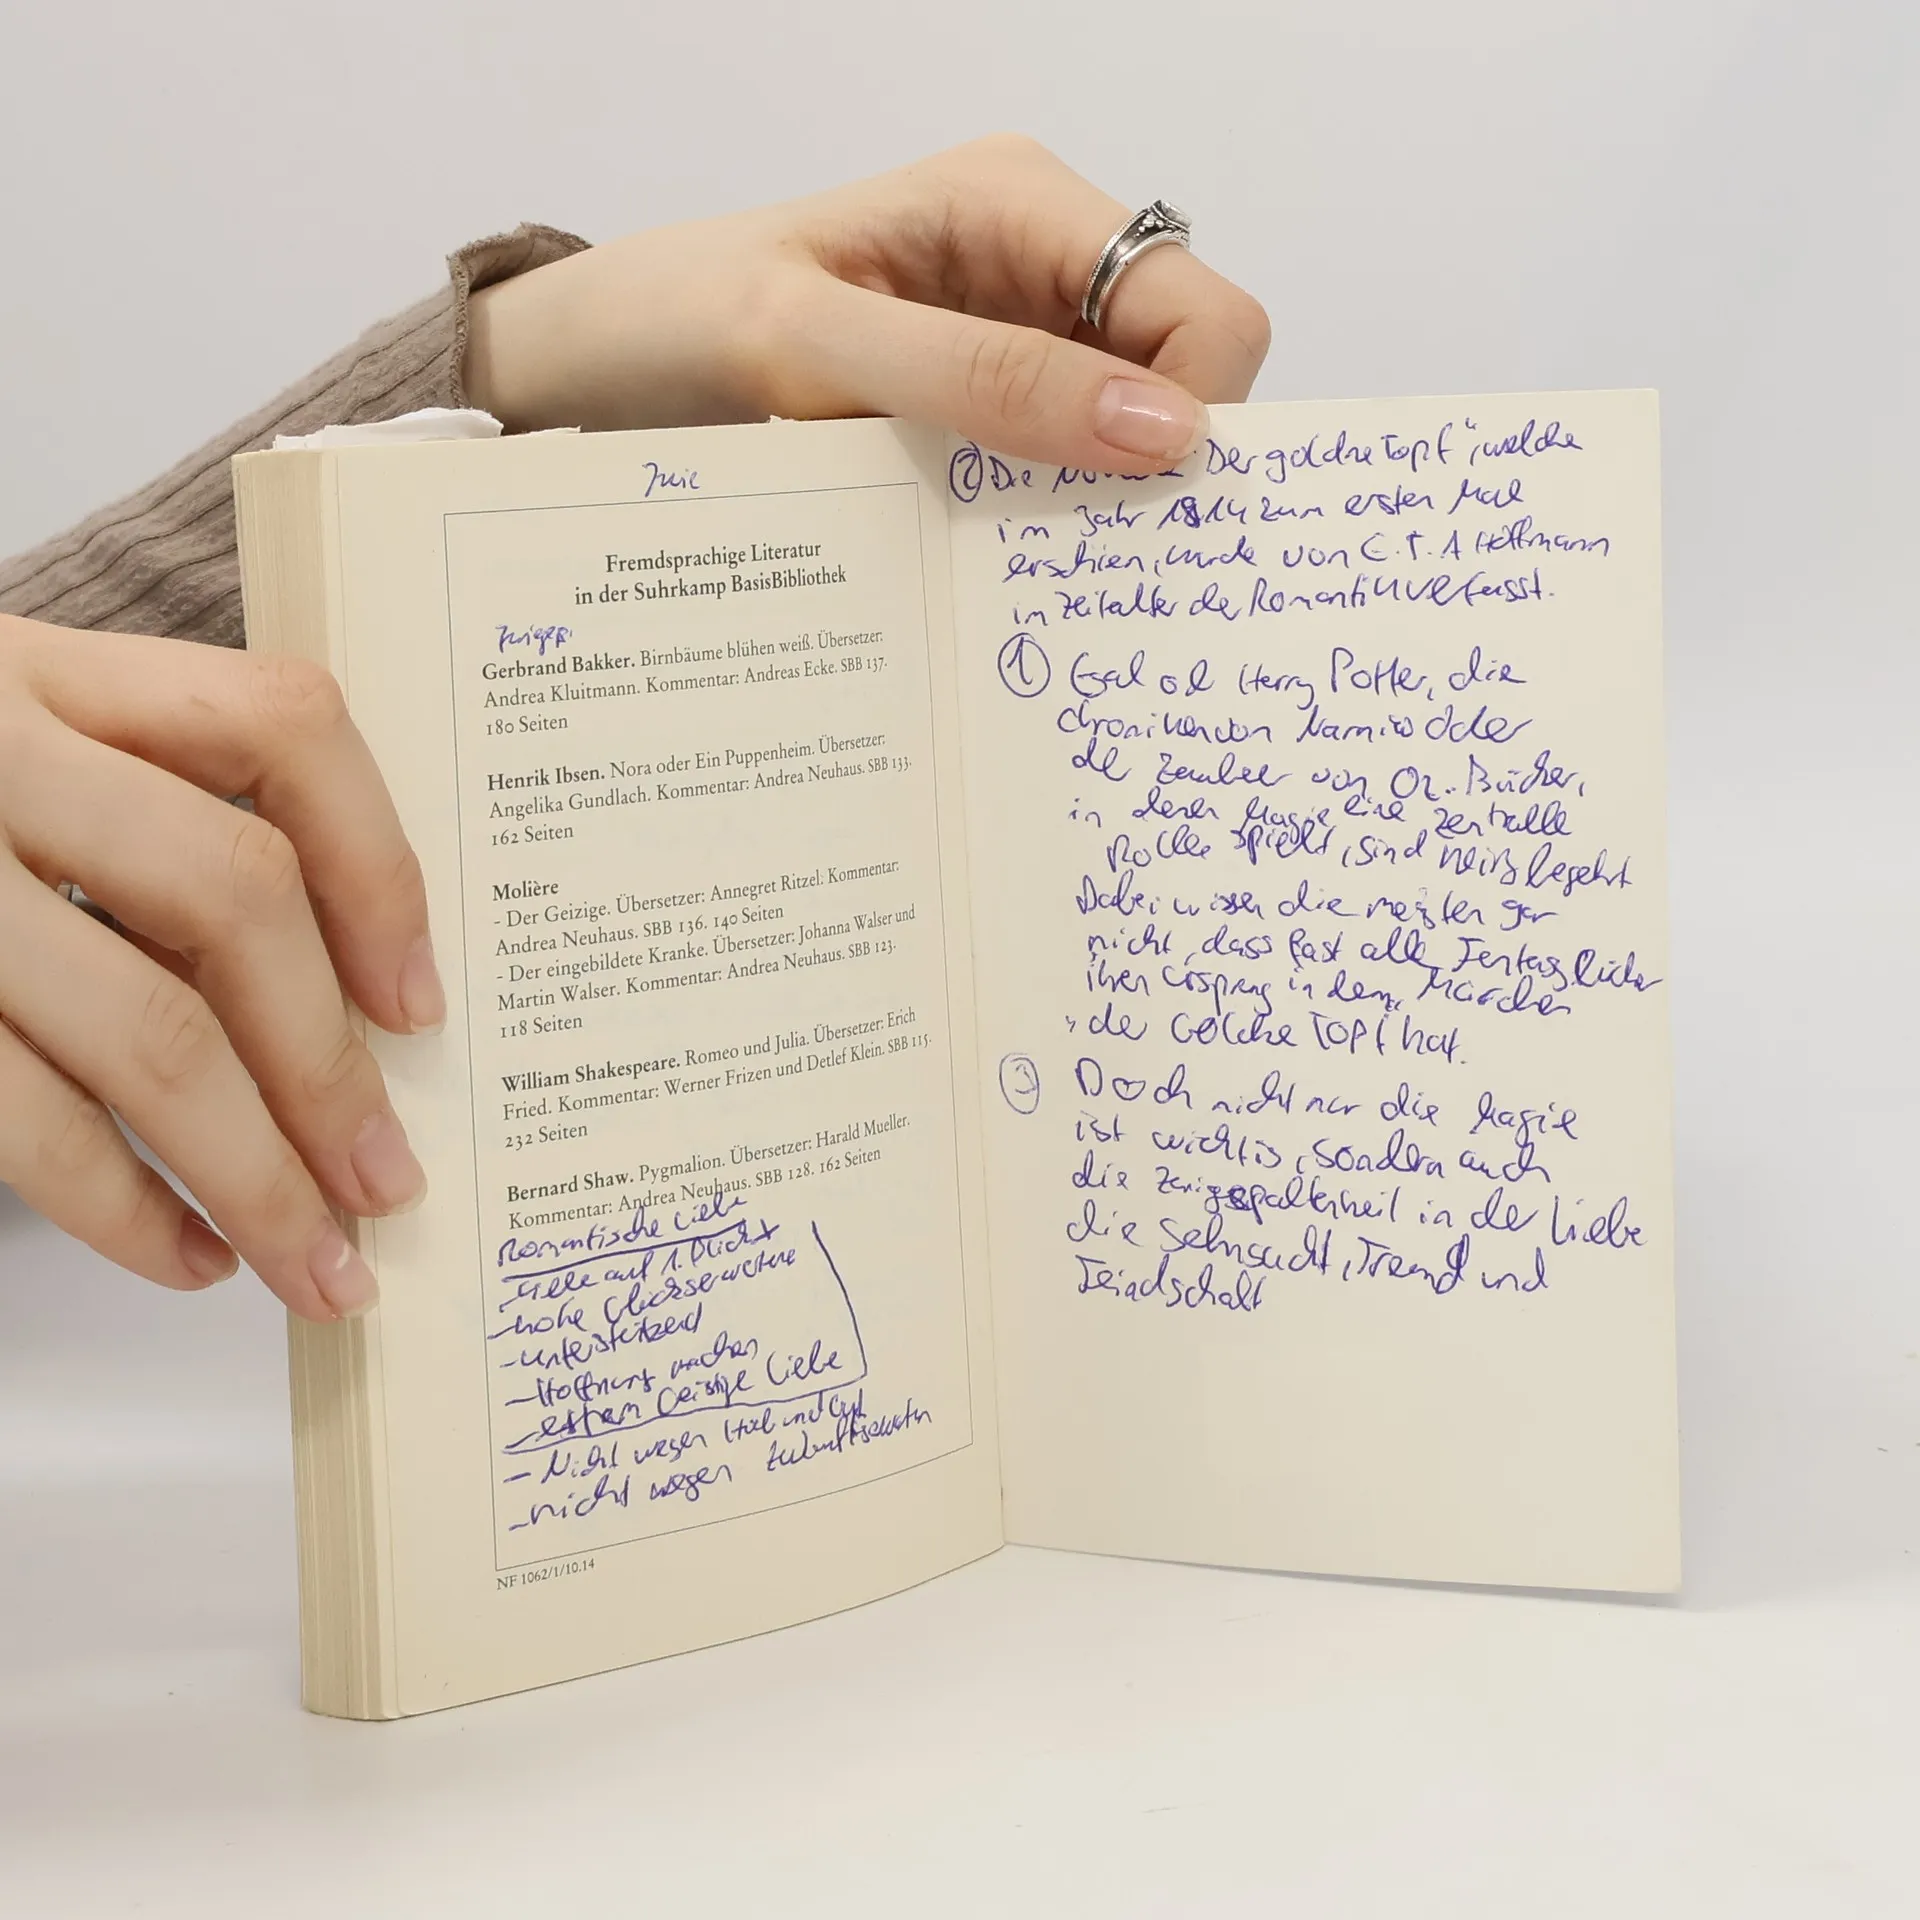 Fremdsprachige Literatur
in der Suhrkamp BasisBibliothek
Gerbrand Bakker. Birnbäume blühen weiß. Übersetzer:
Andrea Kluitmann. Kommentar: Andreas Ecke. SBB 137.
180 Seiten
Henrik Ibsen. Nora oder Ein Puppenheim. Übersetzer:
Angelika Gundlach. Kommentar: Andrea Neuhaus. SBB 133.
162 Seiten
Molière
- Der Geizige. Übersetzer: Annegret Ritzel. Kommentar:
Andrea Neuhaus. SBB 136. 140 Seiten
- Der eingebildete Kranke. Übersetzer: Johanna Walser und
Martin Walser. Kommentar: Andrea Neuhaus. SBB 123.
118 Seiten
William Shakespeare. Romeo und Julia. Übersetzer: Erich
Fried. Kommentar: Werner Frizen und Detlef Klein. SBB 115.
232 Seiten
Bernard Shaw. Pygmalion. Übersetzer: Harald Mueller.
Kommentar: Andrea Neuhaus. SBB 128. 162 Seiten
Romantische Liebe
auf 1. Blick
- hohe
- unterstützend
- Hoffnung machen
- Geistige Liebe
- Nicht wegen und
- nicht wegen
NF 1062/1/10.14
② Die Der goldne Topf", welche
im Jahr 1814 zum ersten Mal
erschien, wurde von E.T.A Hoffmann
im Zeitalter der Romantik verfasst.
① Egal ob Harry Potter, die
Chroniken von oder
der Zauber von Oz. Bücher,
in denen Magie eine zentralle
Rolle spielt, sind begehrt
Dabei wissen die meisten gar
nicht, dass fast alle
ihren Ursprung in dem Märchen
„der Goldne Topf hat.
③ Doch nicht nur die Magie
ist wichtig, sondern auch
die in der Liebe
die Sehnsucht, Freund und
Feindschaft